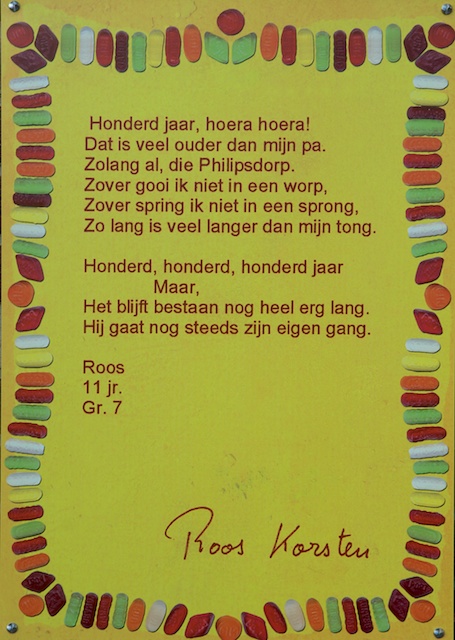 Honderd jaar, hoera hoera!
Dat is veel ouder dan mijn pa.
Zolang al, die Philipsdorp.
Zover gooi ik niet in een worp,
Zover spring ik niet in een sprong,
Zo lang is veel langer dan mijn tong.
Honderd, honderd, honderd jaar
Maar,
Het blijft bestaan nog heel erg lang.
Hij gaat nog steeds zijn eigen gang.
Roos
11 jr.
Gr. 7
Roos Korsten